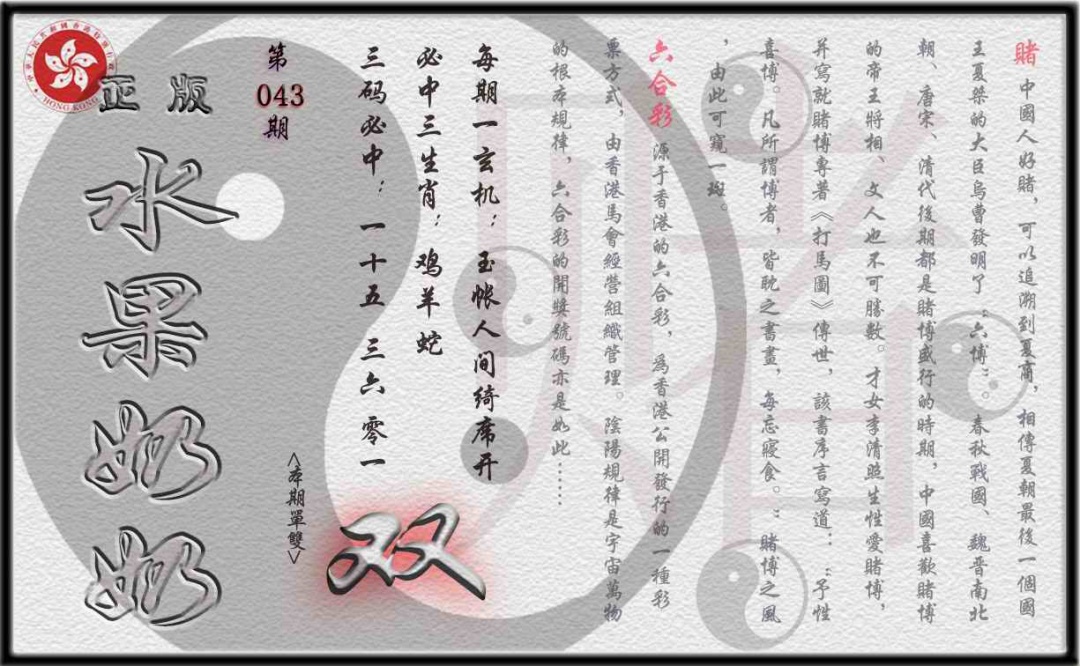 賭 中國人好賭，可以追溯到夏商，相傳夏朝最後一個國
王夏桀的大臣烏曹發明了“六博”。春秋戰國、魏晉南北
朝、唐宋、清代後期都是賭博盛行的時期，中國喜歡賭博
的帝王將相、文人也不可勝數。才女李清照生性愛賭博，
并寫就賭博專著《打馬圖》傳世，該書序言寫道：“予性
喜博。凡所謂博者，皆耽之書畫，每忘寢食。”賭博之風
，由此可窺一斑。
六合彩 源于香港的六合彩，爲香港公開發行的一種彩
票方式，由香港馬會經營組織管理。陰陽規律是宇宙萬物
的根本規律，六合彩的開獎號碼亦是如此……
每期一玄机：玉帐人间绮席开
必中三生肖：鸡羊蛇
三码必中：一十五 三六 零一
双
<本期單雙>
第
043
期
正版
水果奶奶
HONG KONG